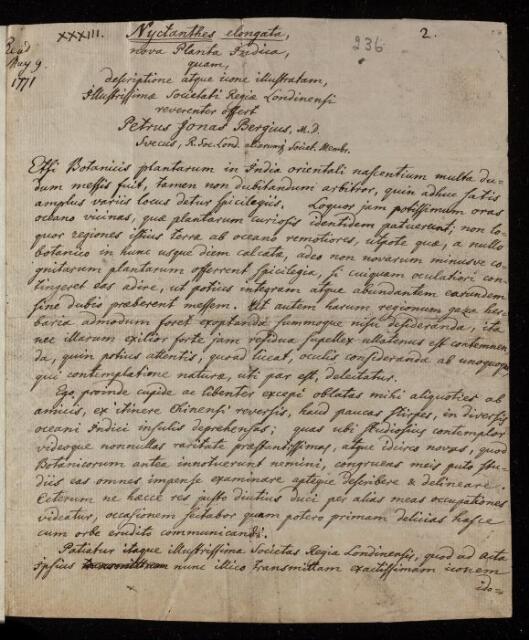 XXXIII. Nyctanthes elongata, 236 2.
Read
May 9.
1771
nova Planta Indica,
quam,
descriptione atque icone illustratam,
Illustrissimæ Societati Regiæ Londinensi
reverenter offert
Petrus Jonas Bergius, M.D.
Svecus, R. Soc. Lond. aliarumq Societ. Membr.
Etsi Botanicis plantarum in India orientali nascentium multa du-
dum messis fuit, tamen non dubitandum arbitror, quin adhuc satis
amplus variis locus detur spicilegiis. Loquor jam potissimum oras
oceano vicinas, quæ plantarum curiosis identidem patuerunt; non lo-
quor regiones istius terræ ab oceano remotiores, utpote quæ, a nullo
botanico in hunc usque diem calcata, adeo non novarum minusve co-
gnitarum plantarum offerrent spicilegia, si cuiquam oculatiori con-
tingeret eas adire, ut potius integram atque abundantem earundem
sine dubio præberent messem. Ut autem harum regionum gaza her-
baria admodum foret exoptanda summoque nisu desideranda, ita
nec illarum exilior forte jam residua supellex ullatenus est contemnen-
da, quin potius attentis, quoad liceat, oculis consideranda ab unoquoque,
qui contemplatione naturæ, uti par est, delectatur.
Ego proinde cupide ac libenter excepi oblatas mihi aliquoties ab
amicis, ex itinere Chinensi reversis, haud paucas stirpes, in diversis
oceani Indici insulis deprehensas; quas ubi studiosius contemplor
videoque nonnullas raritate præstantissimas, atque idcirco novas, quod
Botanicorum antea innotuerunt nemini, congruens meis puto stu-
diis eas omnes impense examinare apteque describere & delineare.
Ceterum ne hæcce res justo diutius duci per alias meas occupationes
videatur, occasionem sectabor quam potero primam delicias hasce
cum orbe erudito communicandi.
Patiatur itaque illustrissima Societas Regia Londinensis, quod ad Acta
Ipsius nunc illico transmittam exactissimam iconem
ido=